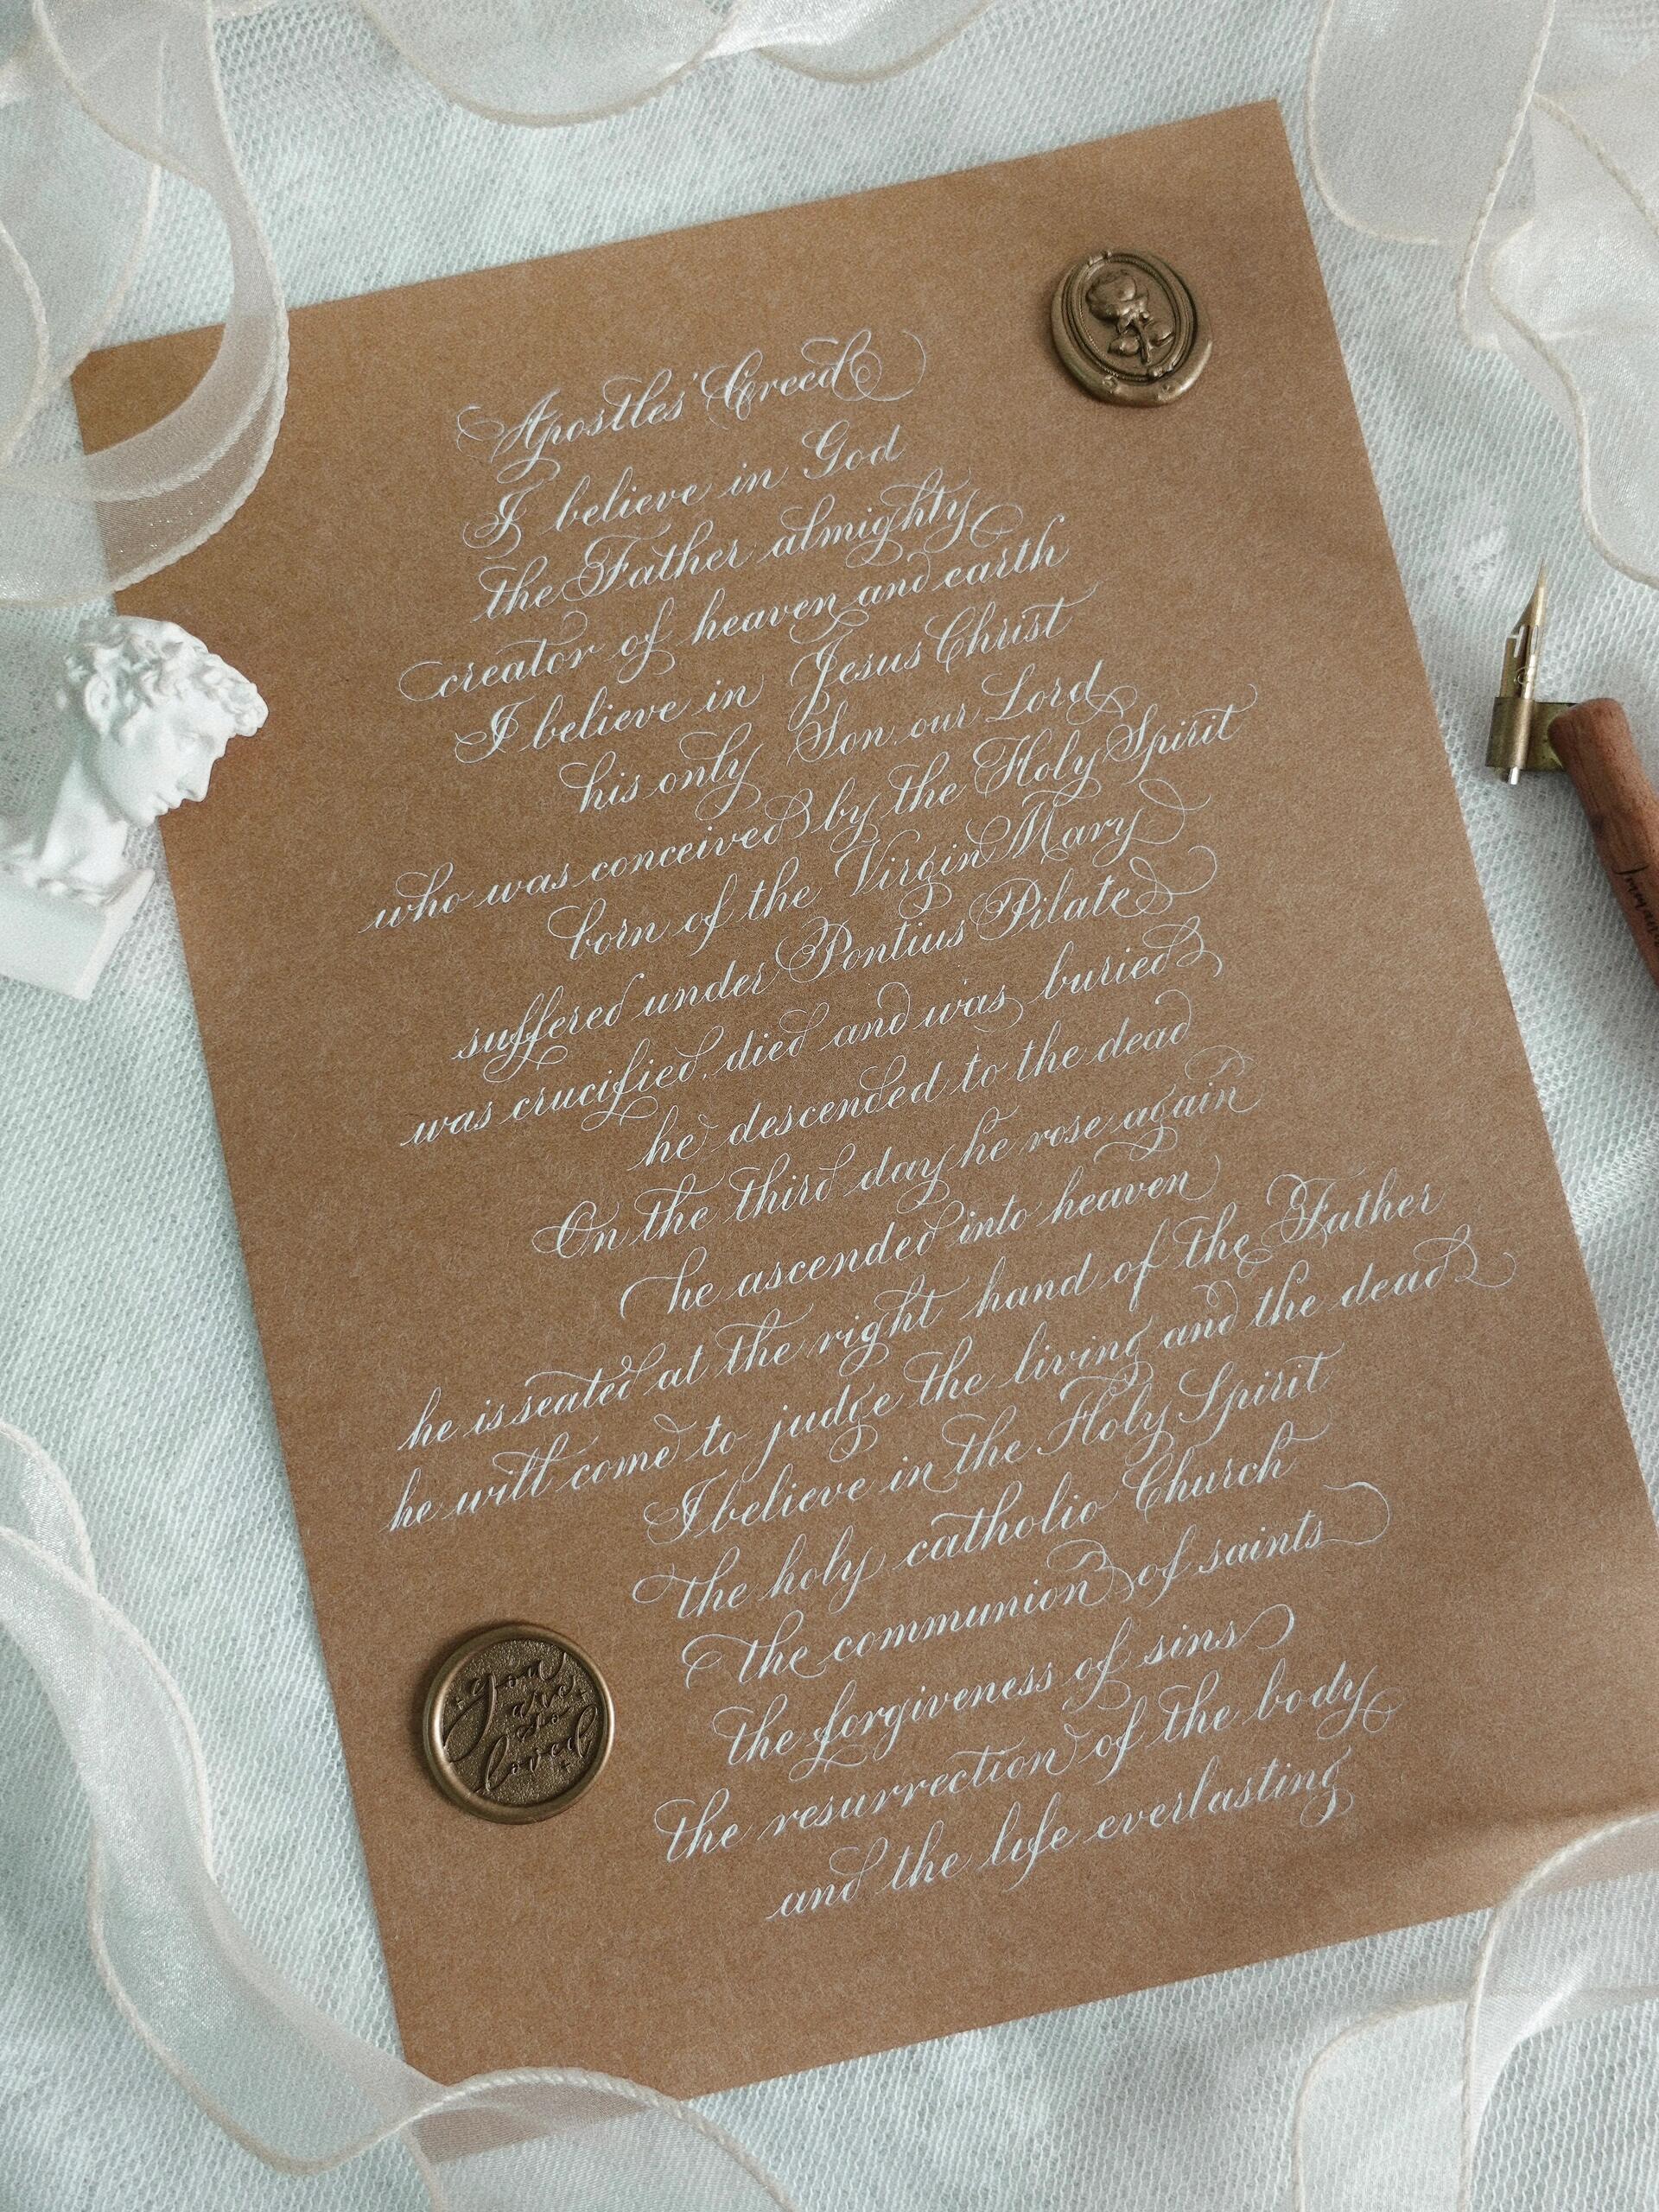 Apostles' Creed
I believe in God
the Father almighty
creator of heaven and earth
I believe in Jesus Christ
his only Son, our Lord
who was conceived by the Holy Spirit
born of the Virgin Mary
suffered under Pontius Pilate
was crucified, died and was buried
he descended to the dead
On the third day he rose again
he ascended into heaven
he is seated at the right hand of the Father
he will come to judge the living and the dead
I believe in the Holy Spirit
the holy catholic Church
the communion of saints
the forgiveness of sins
the resurrection of the body
and the life everlasting
you
are
so
loved